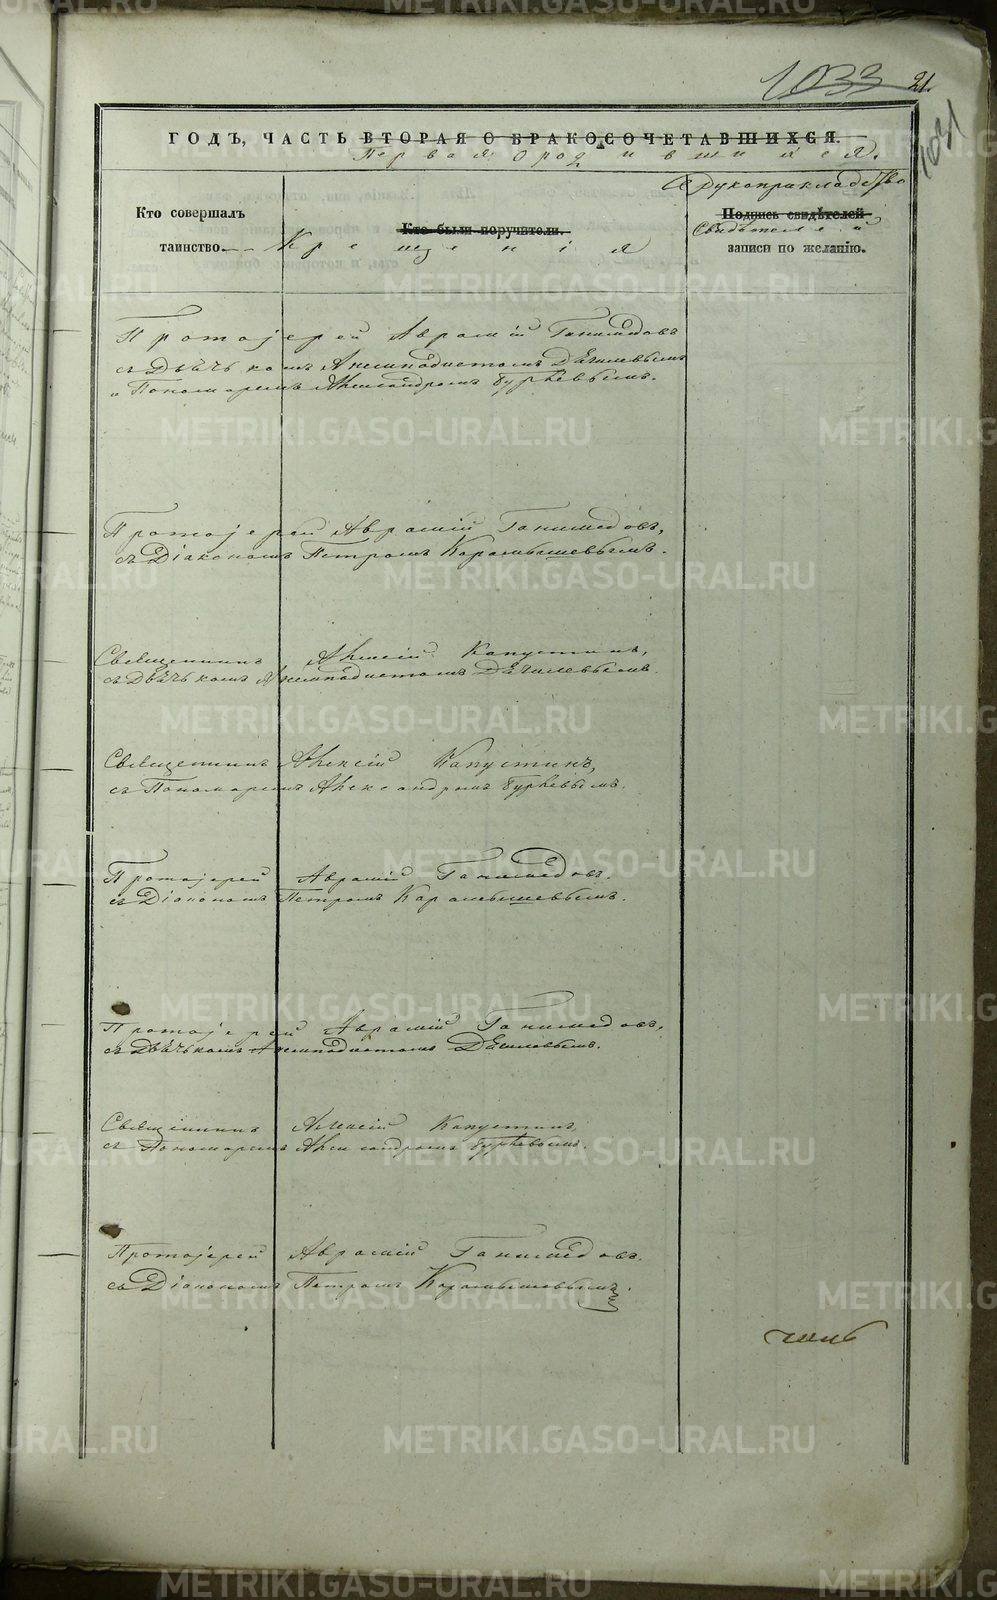 METRIKI.GASO-URAL.RU
1033 21.
1031
ГОДЪ, ЧАСТЬ ВТОРАЯ О БРАКОСОЧЕТАВШИХСЯ.
Первая О родившихся.
Кто совершалъ таинство
Крещенія
Кто были поручители.
Рукоприкладство
Подпись свидѣтелей
Свидѣтелей
записи по желанію.
Протоjерей Аврамій Ганимедовъ
съ Дьячькомъ Анемподистомъ Дягилевымъ
и Пономаремъ Александромъ Бурһевымъ.
Протоjерей Аврамій Ганимедовъ,
съ Діакономъ Петромъ Карамышевымъ.
Священникъ Алексій Капустинъ,
съ Дьячькомъ Анемподистомъ Дягилевымъ.
Священникъ Алексій Капустинъ,
съ Пономаремъ Александромъ Бурһевымъ.
Протоjерей Аврамій Ганимедовъ.
съ Діакономъ Петромъ Карамышевымъ.
Протоjерей Аврамій Ганимедовъ,
съ Дьячькомъ Анемподистомъ Дягилевымъ.
Священникъ Алексій Капустинъ,
съ Пономаремъ Александромъ Бурһевымъ.
Протоjерей Аврамій Ганимедовъ.
съ Діакономъ Петромъ Карамышевымъ.